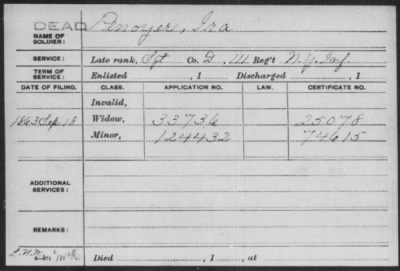 DEAD
NAME OF SOLDIER: Penoyer, Ira
SERVICE: Late rank, Sgt Co. D, 14 Reg't N.Y. Inf.
TERM OF SERVICE: Enlisted , 1 Discharged , 1
DATE OF FILING. CLASS. APPLICATION NO. LAW. CERTIFICATE NO.
Invalid,
1863 Sep 18 Widow, 33736 25078
Minor, 124432 74615
ADDITIONAL SERVICES:
REMARKS:
Died , 1 , at